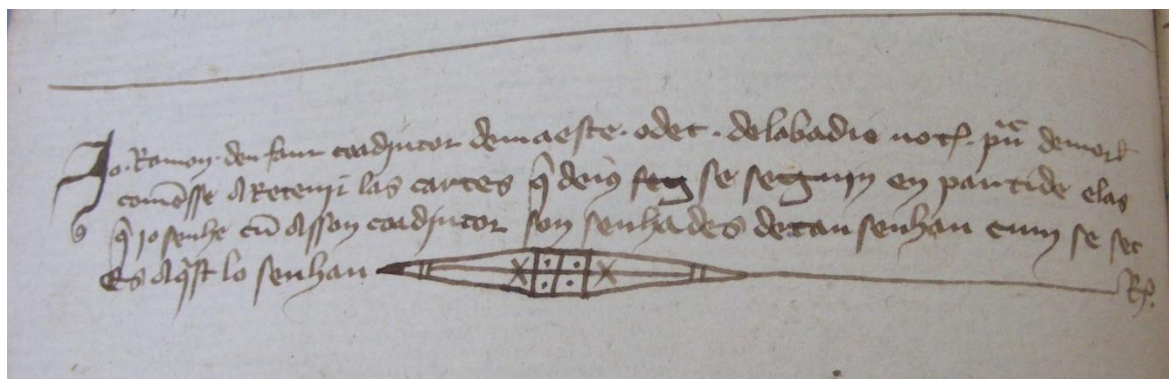 Jo. Ramon. deu faur coadjutor demaeste. odet. delabadie not. pu demorl
comesse a Retenir las cartes q deius se seguin en partide e las
q jo senhe cu asson coadjutor son senhades de tau senhau cum se sec
Es aqst lo senhau
R.